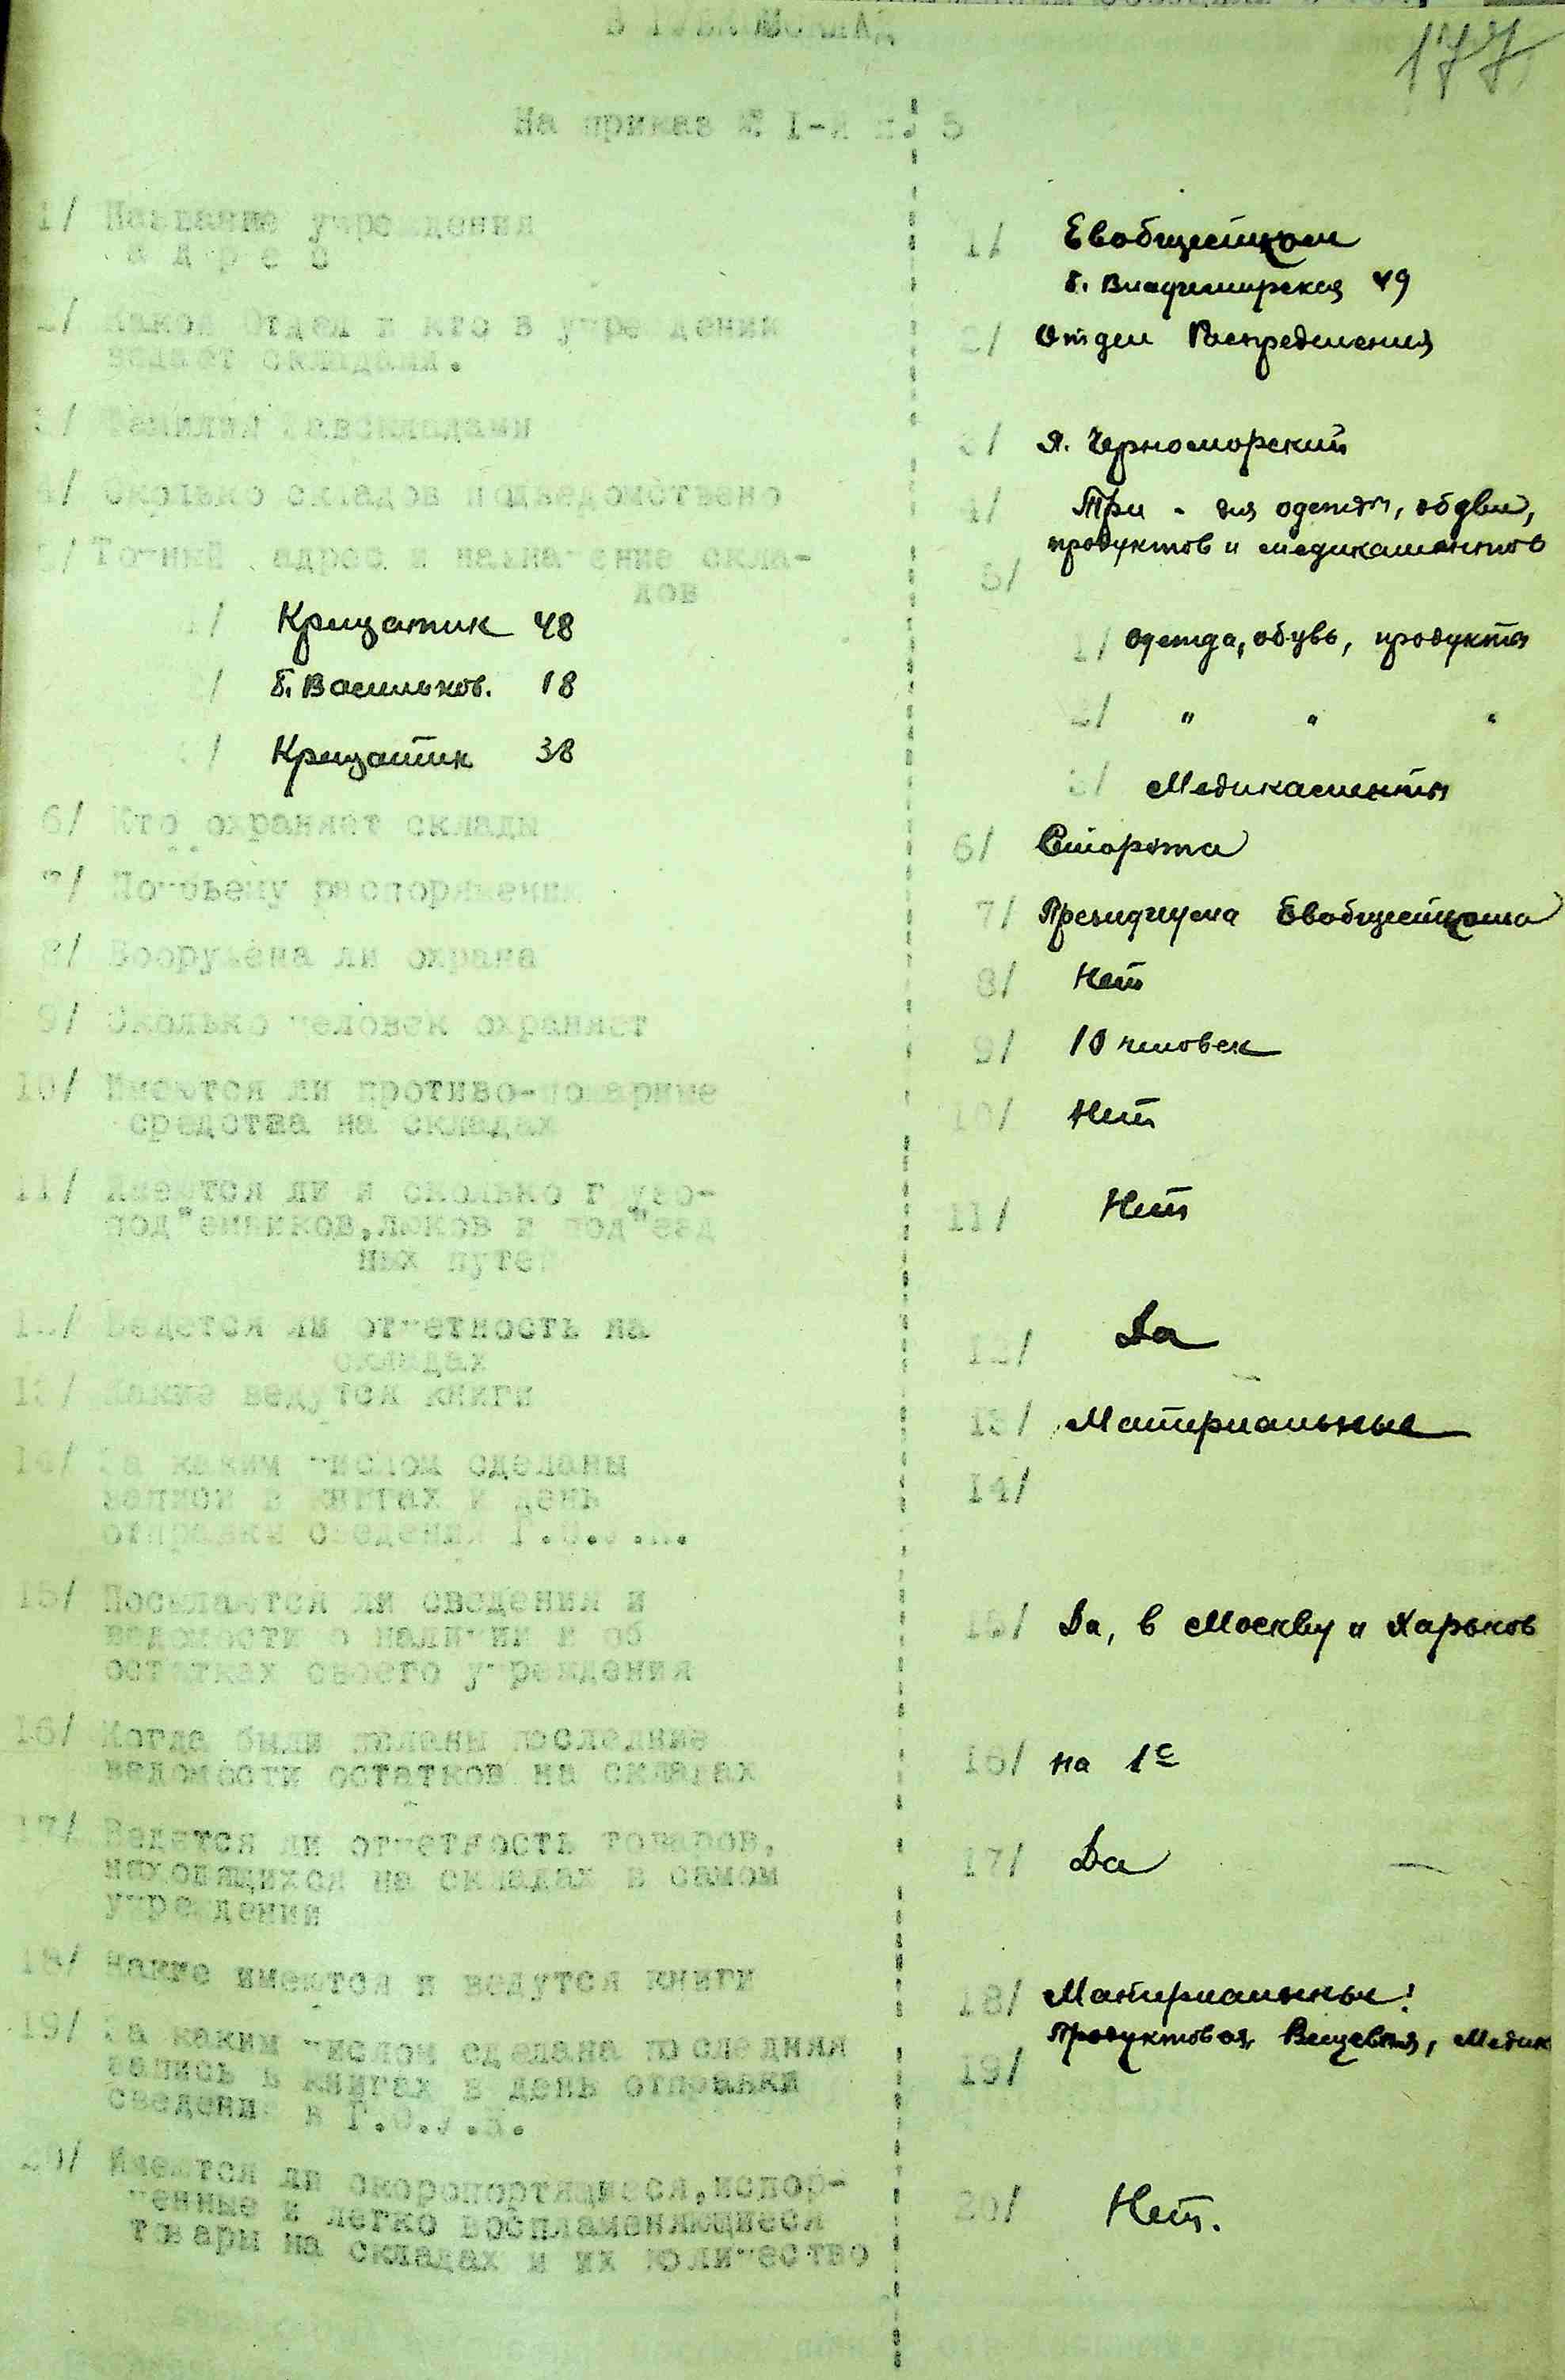 177
На приказ № I-й п. 5
1/ Название учреждения
а д р е с
1/ Евобщестком
б. Владимирская 49
2/ Какой отдел и кто в учреждении
ведает складами.
2/ Отдел Распределения
3/ Фамилия Завскладами
3/ Я. Черноморский
4/ Сколько складов подведомственно
4/ Три - для одежды, обуви,
продуктов и медикаментов
5/ Точный адрес и назначение скла-
дов
5/
1/ Крещатик 48
1/ одежда, обувь, продукты
/ б. Васильков. 18
2/ " " "
/ Крещатик 38
3/ Медикаменты
6/ Кто охраняет склады
6/ Сторожа
7/ По чьему распоряжению
7/ Президиума Евобщесткома
8/ Вооружена ли охрана
8/ Нет
9/ Сколько человек охраняет
9/ 10 человек
10/ Имеются ли противо-пожарные
средства на складах
10/ Нет
11/ Имеются ли и сколько грузо-
под"емников, люков и под"езд
ных путей
11/ Нет
12/ Ведется ли отчетность на
складах
12/ Да
13/ Какие ведутся книги
13/ Материальные
14/ За каким числом сделаны
записи в книгах в день
отправки сведений
14/
15/ Посылаются ли сведения и
ведомости о наличии и об
остатках своего учреждения
15/ Да, в Москву и Харьков
16/ Когда были поданы последние
ведомости остатков на складах
16/ на 1е
17/ Ведется ли отчетность товаров,
находящихся на складах в самом
учреждении
17/ Да
18/ Какие имеются и ведутся книги
18/ Материальные:
Продуктовая, Вещевая, Медик
19/ За каким числом сделана последняя
запись в книгах в день отправки
сведений в
19/
20/ Имеются ли скоропортящиеся, испор-
ченные и легко воспламеняющиеся
товары на складах и их количество
20/ Нет.